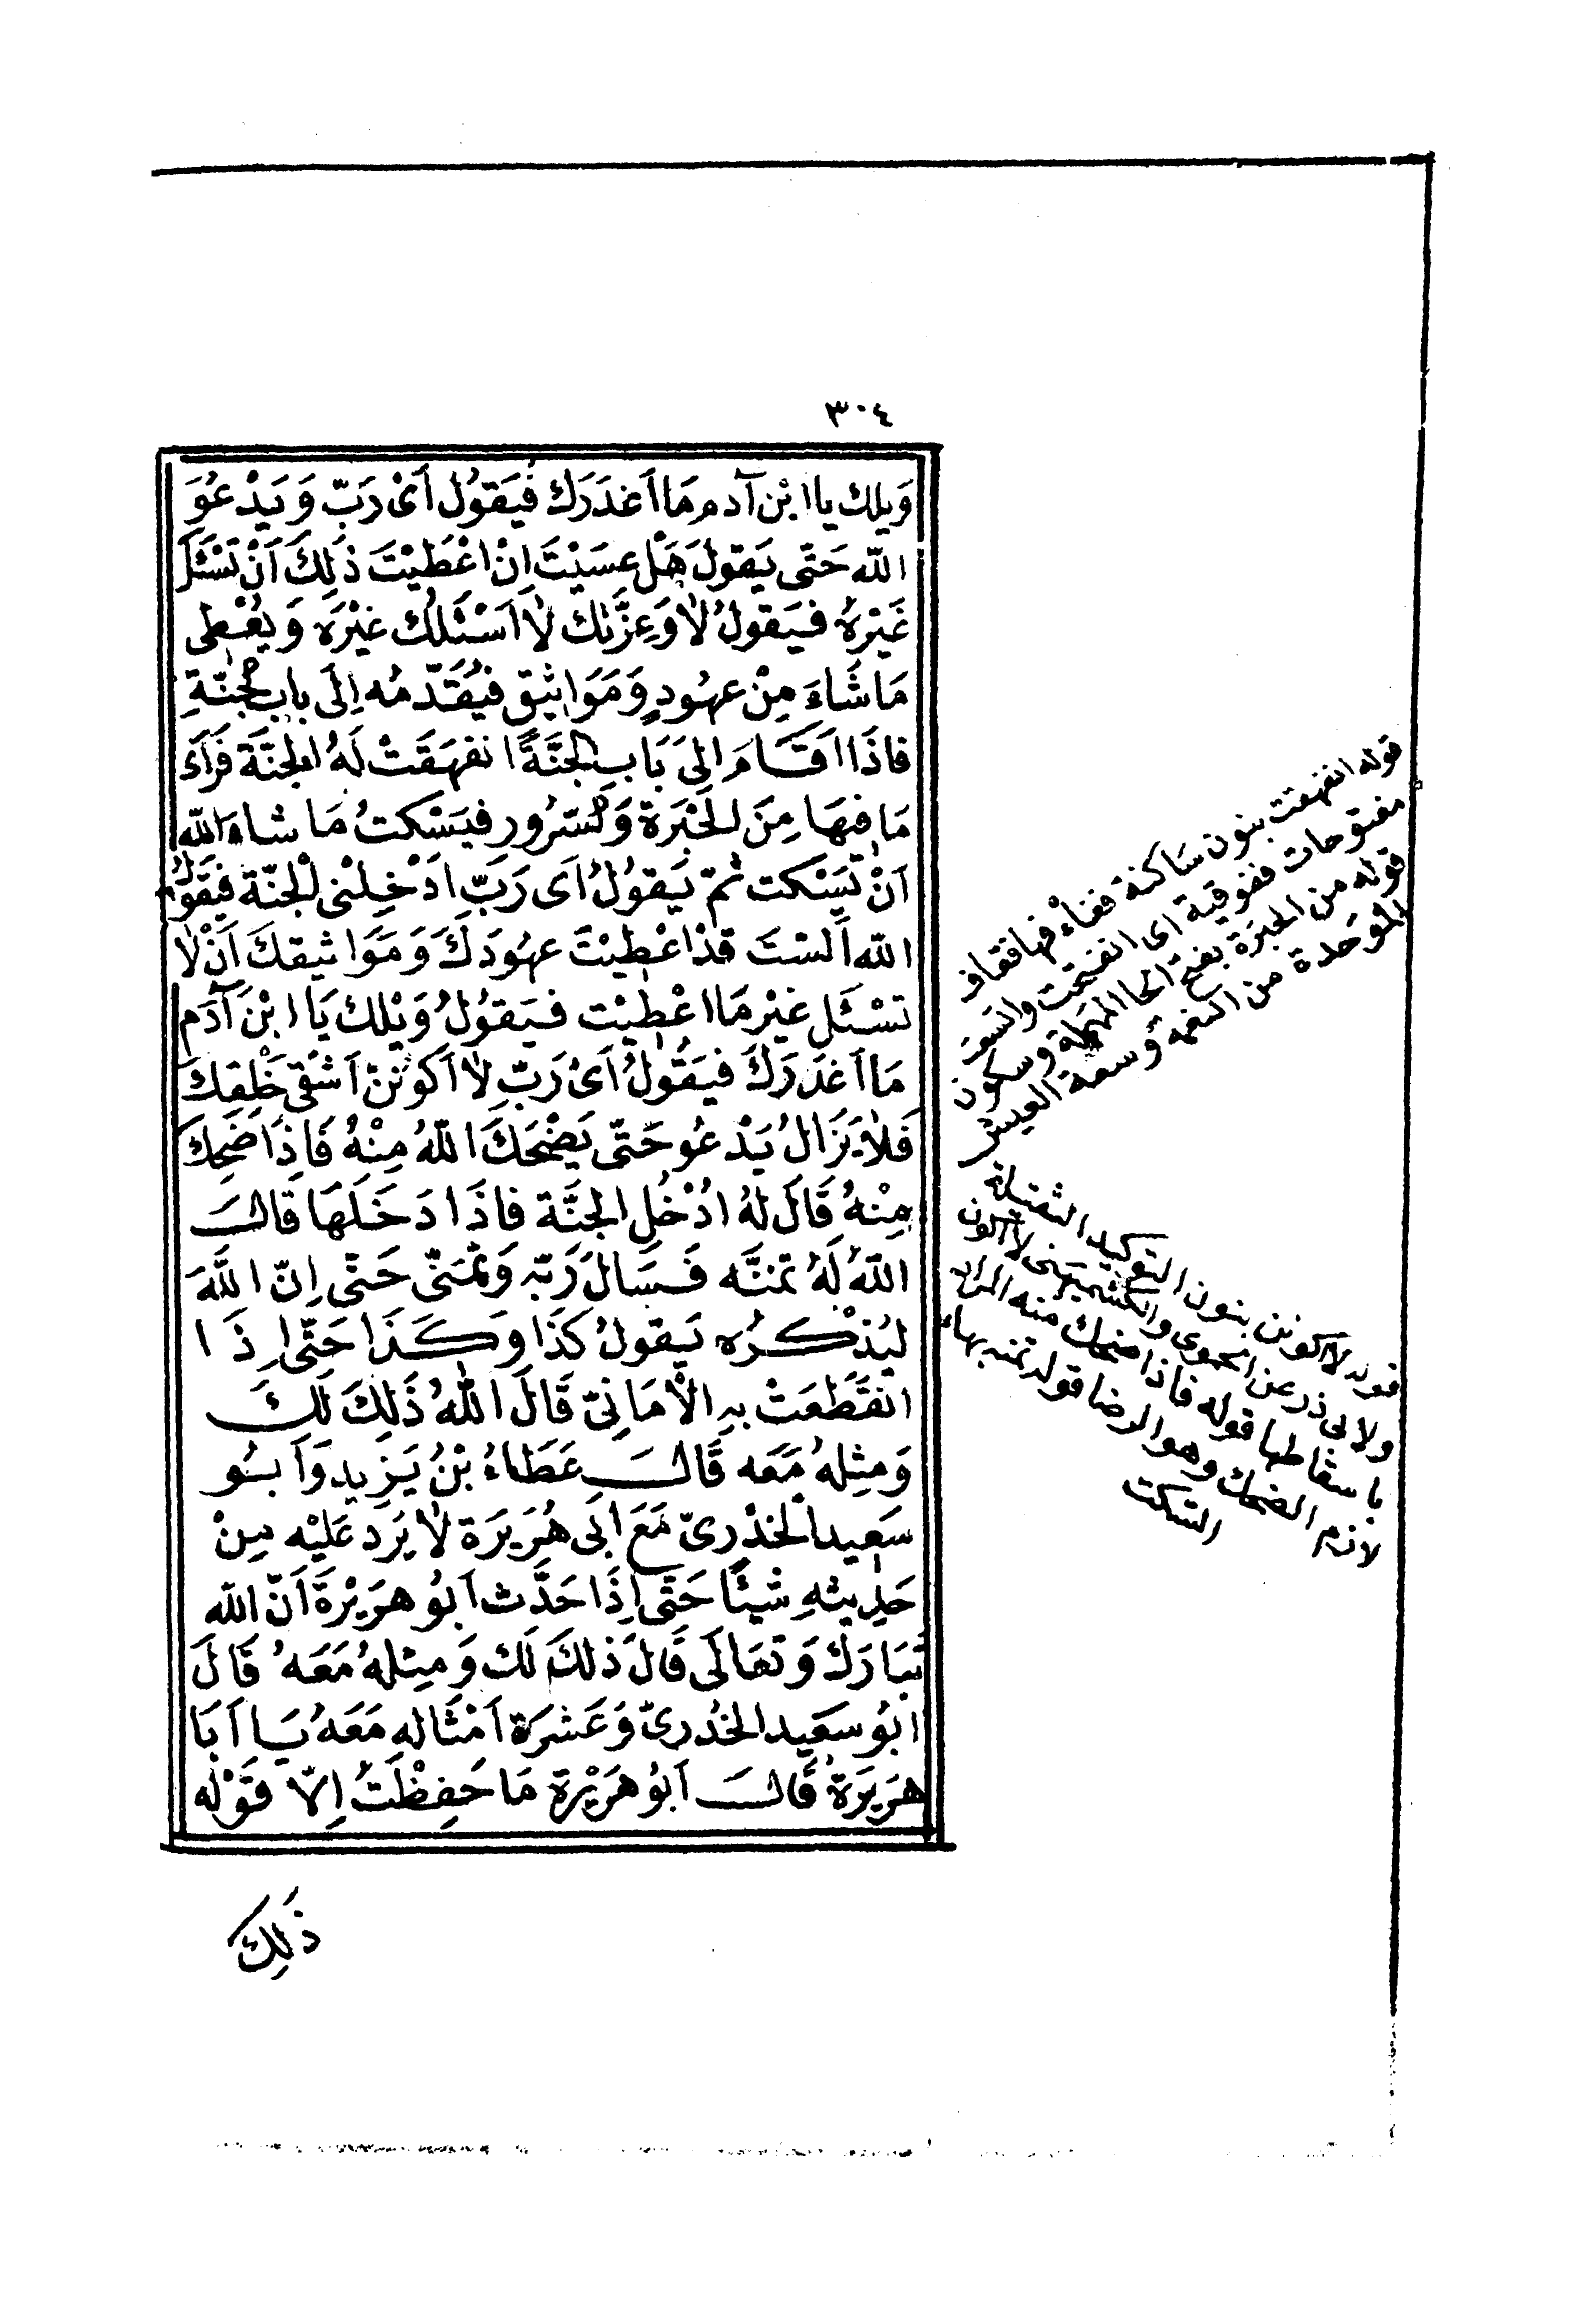 ٣٠٤
وَيلك ياابْن آدم مَا اَغدَرَك فيَقوُل اَىْ رَبّ وَيَدْعُوَ
الله حَتّى يَقولَ هَلْ عسَيْتَ اِنْ اعْطَيْتَ ذلِكَ اَنْ تَسْئَلَ
غَيْرَهُ فيَقولُ لاٰ وَعِزَّتك لاٰ اَسْئَلُكَ غيْرَه وَيُعْطى
مَا شَاءَ مِنْ عهُودٍ وَمَوَاثيق فيُقَدّمُه اِلَى باب الجنّةِ
فاذَا اقَامَ الىَ بَاب الجَنَّة انفهَقَتْ لَهُ الجنَّة فَرَآَى
مَا فيهَا مِنَ الحَبْرَة وَالسّرُور فيَسْكتُ مَا شاء الله
اَنْ يَسْكت ثمّ يَقوُلُ اَى رَبّ اَدْخِلْنى الْجنّة فيَقوُلُ
الله اَلسْتَ قدْ اعْطيْتَ عهُودَكَ وَمَوَاثيقكَ اَنْ لاٰ
تسْئَل غيْر مَا اعْطِيْت فيَقوُلُ وَيْلك يَا ابْنَ آدَم
مَا اَغدَرَكَ فيَقُولُ اَىْ رَبّ لاٰ اَكوُننّ اَشقَى خَلْقِكَ
فَلاٰ يَزَالُ يَدْعُو حَتّى يَضْحَكَ اللّهُ مِنْهُ فَاِذَا ضَحِكَ
مِنْهُ قَالَ لهُ ادْخُلِ الجَنَّة فاذَا دَخَلَهَا قالَ
اللّهُ لَهُ تمنَّه فَسَالَ رَبّه وَتمَنّى حَتّى اِنّ اللَّهَ
ليُذْكرُه يَقولُ كَذَا وَكَذَا حَتّى اِذَا
انقَطَعَتْ بهِ الاَْمَانىّ قَالَ اللّهُ ذَلِكَ لَكَ
وَمثِلهُ مَعَه قَالَ عَطَاءُ بْنُ يَزيد وَاَبُو
سَعِيد الْخدْرىّ مَعَ اَبى هُرَيرَة لاٰ يَرُد عَليْه مِنْ
حَدِيثهِ شيْئًا حَتّى اِذَا حَدَّث اَبوُ هرَيْرَةَ اَنّ الله
تبَارَكَ وَتعَالَى قَالَ ذلكَ لَك وَمِثلهُ مَعَهُ قَالَ
ابوُ سعَيد الخُدرىّ وَعَشرَة اَمْثَاله مَعَهُ يَا اَبَا
هرَيرَة قَالَ اَبوُ هرَيْرة مَا حَفِظْتُ اِلاّ قَوْله
ذَلِكَ
قوله انفهقت بنون ساكنة ففاء فهاء فقاف
مفتوحات ففوقية اى انفتحت واتسعت
قوله من الحبرة بفتح الحا المهملة وسكون
الموحدة من النعمة وسعة العيش
قوله لا اكونن بنون التوكيد الثقيلة
ولابى ذر عن الحموى والكشميهنى لا اكون
باسقاطها قوله فاذا ضحك منه المراد
لازم الضحك وهو الرضا قوله تمنه بهاء
السكت